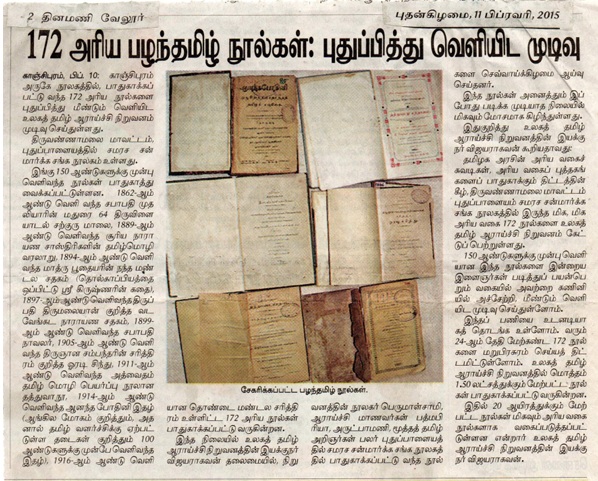 2 தினமணி வேலூர்
புதன்கிழமை, 11 பிப்ரவரி, 2015
172 அரிய பழந்தமிழ் நூல்கள்: புதுப்பித்து வெளியிட முடிவு
காஞ்சிபுரம், பிப். 10: காஞ்சிபுரம்
அருகே நூலகத்தில், பாதுகாக்கப்
பட்டு வந்த 172 அரிய நூல்களை
புதுப்பித்து மீண்டும் வெளியிட
உலகத் தமிழ் ஆராய்ச்சி நிறுவனம்
முடிவு செய்துள்ளது.
திருவண்ணாமலை மாவட்டம்,
புதுப்பாளையத்தில் சமரச சன்
மார்க்க சங்க நூலகம் உள்ளது.
இங்கு 150 ஆண்டுகளுக்கு முன்பு
வெளிவந்த நூல்கள் பாதுகாத்து
வைக்கப்பட்டுள்ளன. 1862-ஆம்
ஆண்டு வெளி வந்த சபாபதி முத
லியாரின் மதுரை 64 திருவிளை
யாடல் சற்குரு மாலை, 1889-ஆம்
ஆண்டு வெளிவந்த சூரிய நாரா
யண சாஸ்திரிகளின் தமிழ்மொழி
வரலாறு, 1894-ஆம் ஆண்டு வெளி
வந்த மாத்ரு பூதையரின் நந்த மண்
டல சதகம் (தொல்காப்பியத்தை
ஒப்பிட்டு ஸ்ரீ கிருஷ்ணரின் கதை),
1897-ஆம் ஆண்டு வெளிவந்த திருப்
பதி திருமலையான் குறித்த வட
வேங்கட நாராயண சதகம், 1899-
ஆம் ஆண்டு வெளிவந்த சபாபதி
நாவலர், 1905-ஆம் ஆண்டு வெளி
வந்த திருஞான சம்பந்தரின் சரித்திர
ம் குறித்த ஒரடி சிந்து, 1911-ஆம்
ஆண்டு வெளிவந்த அத்வைதம்
தமிழ் மொழி பெயர்ப்பு நூலான
தத்துவாநு, 1914-ஆம் ஆண்டு
வெளிவந்த ஆனந்த போதினி இதழ்
(ஆங்கில மோகம் குறித்தும், அத
னால் தமிழ் வளர்ச்சிக்கு ஏற்பட்
டுள்ள தடைகள் குறித்தும் 100
ஆண்டுகளுக்கு முன்பே வெளிவந்த
இதழ்), 1916-ஆம் ஆண்டு வெளி
சேகரிக்கப்பட்ட பழந்தமிழ் நூல்கள்.
யான தொண்டை மண்டல சரித்திர
ம் உள்ளிட்ட 172 அரிய நூல்கள்
பாதுகாக்கப்பட்டு வருகின்றன.
இந்த நிலையில் உலகத் தமிழ்
ஆராய்ச்சி நிறுவனத்தின் இயக்குநர்
விஜயராகவன் தலைமையில், நிறு
வனத்தின் நூலகர் பெருமாள்சாமி,
ஆராய்ச்சி மாணவர்கள் பத்மபி
ரியா, அருட்டாமணி, மூத்தத் தமிழ்
அறிஞர்கள் பலர் புதுப்பாளையத்
தில் சமரச சன்மார்க்க சங்க நூலகத்
தில் பாதுகாக்கப்பட்டு வந்த நூல்
களை செவ்வாய்க்கிழமை ஆய்வு
செய்தனர்.
இந்த நூல்கள் அனைத்தும் இப்
போது படிக்க முடியாத நிலையில்
மிகவும் மோசமாக கிழிந்துள்ளது.
இதுகுறித்து உலகத் தமிழ்
ஆராய்ச்சி நிறுவனத்தின் இயக்கு
நர் விஜயராகவன் கூறியதாவது:
தமிழக அரசின் அரிய வகைச்
சுவடிகள், அரிய வகைப் புத்தகங்
களைப் பாதுகாக்கும் திட்டத்தின்
கீழ், திருவண்ணாமலை மாவட்டம்
புதுப்பாளையம் சமரச சன்மார்க்க
சங்க நூலகத்தில் இருந்த மிக, மிக
அரிய வகை 172 நூல்களை உலகத்
தமிழ் ஆராய்ச்சி நிறுவனம் கேட்
டுப் பெற்றுள்ளது.
150 ஆண்டுகளுக்கு முன்பு வெளி
யான இந்த நூல்களை இன்றைய
இளைஞர்கள் படித்துப் பயன்பெ
றும் வகையில் அவற்றை கணினி
யில் அச்சேற்றி, மீண்டும் வெளி
யிட முடிவு செய்துள்ளோம்.
இந்தப் பணியை உடனடியா
கத் தொடங்க உள்ளோம். வரும்
24-ஆம் தேதி மேற்கண்ட 172 நூல்
களை மறுபிரசுரம் செய்யத் திட்
டமிட்டுள்ளோம். உலகத் தமிழ்
ஆராய்ச்சி நிறுவனத்தில் மொத்தம்
1.50 லட்சத்துக்கும் மேற்பட்ட நூல்
கள் பாதுகாக்கப்பட்டு வருகின்றன.
இதில் 20 ஆயிரத்துக்கும் மேற்
பட்ட நூல்கள் மிகவும் அரிய வகை
நூல்களாக வகைப்படுத்தப்பட்
டுள்ளன என்றார் உலகத் தமிழ்
ஆராய்ச்சி நிறுவனத்தின் இயக்கு
நர் விஜயராகவன்.